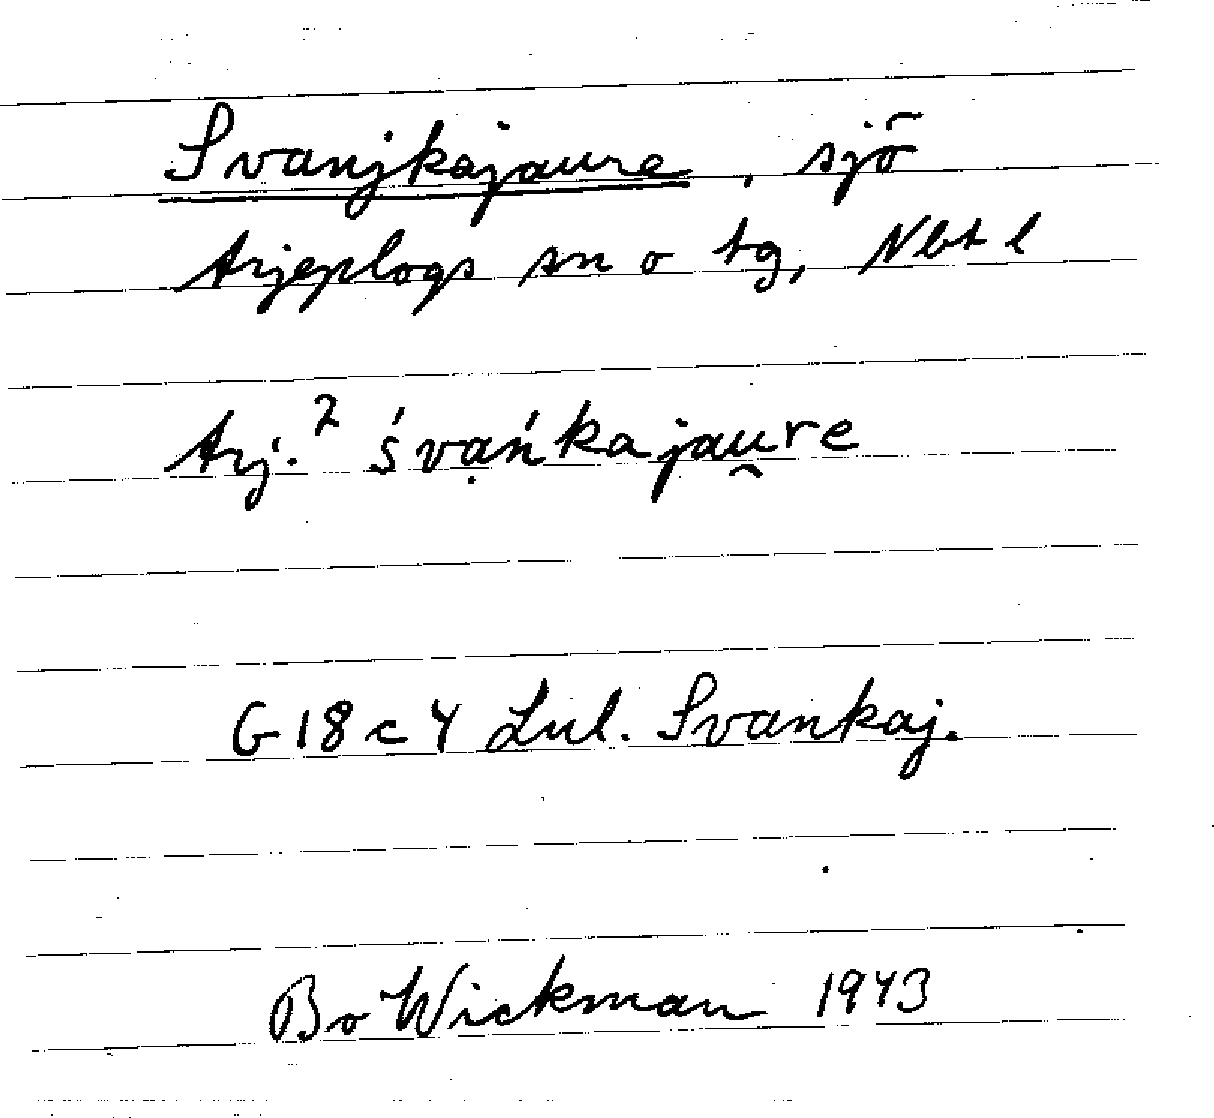 Svanjkajaure, sjö
Arjeplogs sn o tg, Nbt l
Arj.² śvạńkajau̯re
G 18 c 4 Lul. Svankaj.
Bo Wickman 1943